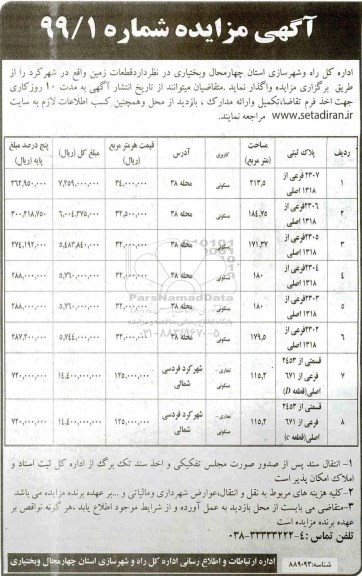 آگهی مزایده شماره ۹۹/۱
اداره کل راه وشهرسازی استان چهارمحال وبختیاری در نظرداردقطعات زمین واقع در شهرکرد را از
طریق برگزاری مزایده واگذار نماید .متقاضیان میتوانند از تاریخ انتشار آگهی به مدت ۱۰ روزکاری
جهت اخذ فرم تقاضا،تکمیل وارائه مدارک ، بازدید از محل وهمچنین کسب اطلاعات لازم به سایت
www.setadiran.ir مراجعه نمایند.
ردیف پلاک ثبتی مساحت (متر مربع) کاربری آدرس قیمت هرمتر مربع (ریال) مبلغ کل (ریال) پنج درصد مبلغ پایه (ریال)
۱ ۲۳۰۷ فرعی از ۱۳۱۸ اصلی ۲۱۳,۵ مسکونی محله ۳۸ ۳۴,۰۰۰,۰۰۰ ۷,۲۵۹,۰۰۰,۰۰۰ ۳۶۲,۹۵۰,۰۰۰
۲ ۲۳۰۶فرعی از ۱۳۱۸ اصلی ۱۸۴,۷۵ مسکونی محله ۳۸ ۳۲,۵۰۰,۰۰۰ ۶,۰۰۴,۳۷۵,۰۰۰ ۳۰۰,۲۱۸,۷۵۰
۳ ۲۳۰۵فرعی از ۱۳۱۸ اصلی ۱۷۱,۳۷ مسکونی محله ۳۸ ۳۲,۰۰۰,۰۰۰ ۵,۴۸۳,۸۴۰,۰۰۰ ۲۷۴,۱۹۲,۰۰۰
۴ ۲۳۰۴فرعی از ۱۳۱۸ اصلی ۱۸۰ مسکونی محله ۳۸ ۳۲,۰۰۰,۰۰۰ ۵,۷۶۰,۰۰۰,۰۰۰ ۲۸۸,۰۰۰,۰۰۰
۵ ۲۳۰۳فرعی از ۱۳۱۸ اصلی ۱۸۰ مسکونی محله ۳۸ ۳۲,۰۰۰,۰۰۰ ۵,۷۶۰,۰۰۰,۰۰۰ ۲۸۸,۰۰۰,۰۰۰
۶ ۲۳۰۲فرعی از ۱۳۱۸ اصلی ۱۷۹,۵ مسکونی محله ۳۸ ۳۲,۰۰۰,۰۰۰ ۵,۷۴۴,۰۰۰,۰۰۰ ۲۸۷,۲۰۰,۰۰۰
۷ قسمتی از ۲۴۵۳ فرعی از ۶۷۱ اصلی(قطعه D) ۱۱۵,۲ تجاری - مسکونی شهرکرد فردسی شمالی ۱۲۵,۰۰۰,۰۰۰ ۱۴,۴۰۰,۰۰۰,۰۰۰ ۷۲۰,۰۰۰,۰۰۰
۸ قسمتی از ۲۴۵۳ فرعی از ۶۷۱ اصلی(قطعه c) ۱۱۵,۲ تجاری - مسکونی شهرکرد فردسی شمالی ۱۲۵,۰۰۰,۰۰۰ ۱۴,۴۰۰,۰۰۰,۰۰۰ ۷۲۰,۰۰۰,۰۰۰
ParsNamadData
۰۲۱-۸۸۳۴۹۶۷۰-۵
۱- انتقال سند پس از صدور صورت مجلس تفکیکی و اخذ سند تک برگ از اداره کل ثبت اسناد و
املاک امکان پذیر است
۲-کلیه هزینه های مربوط به نقل و انتقال،عوارض شهرداری ومالیاتی و ...بر عهده برنده مزایده می باشد
۳-متقاضی می بایست از محل بازدید به عمل آورده و از شرایط موجود اطلاع یابد ،هر گونه نواقص بر
عهده برنده مزایده است
تلفن تماس :۴-۰۳۸-۳۳۳۳۳۲۲۲
شناسه:۸۸۹۰۹۳
اداره ارتباطات و اطلاع رسانی اداره کل راه و شهرسازی استان چهارمحال وبختیاری